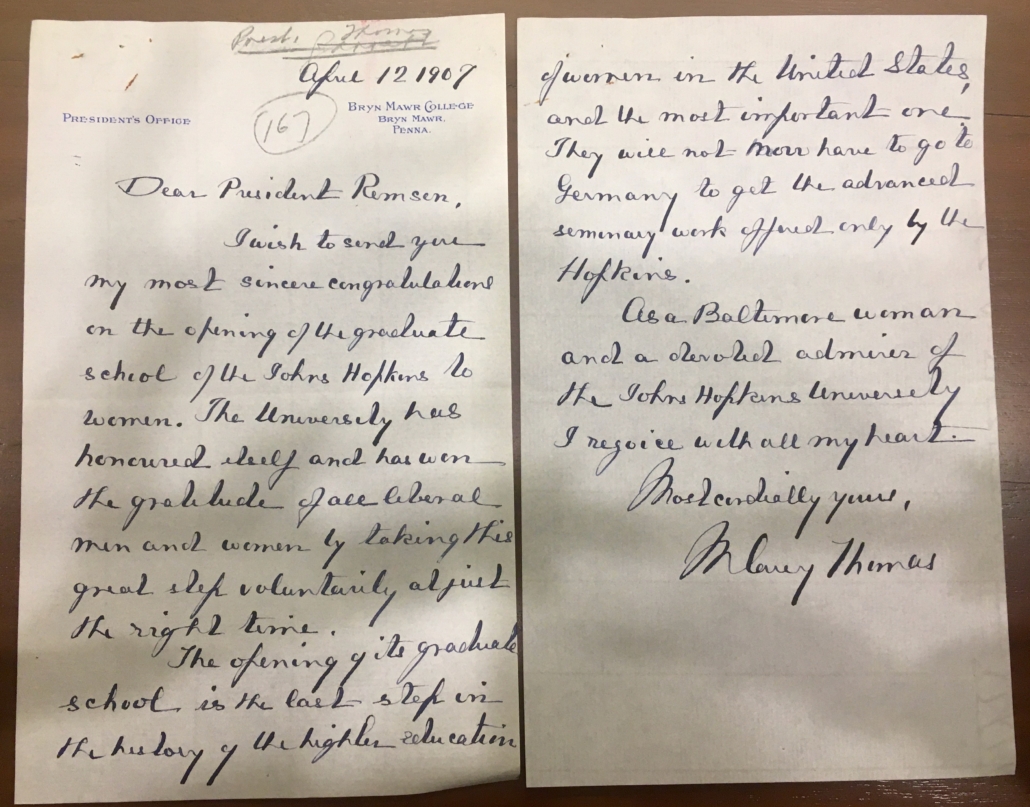 Prest. Thomas
April 12 1907
PRESIDENT'S OFFICE
BRYN MAWR COLLEGE
BRYN MAWR,
PENNA.
167
Dear President Remsen,
I wish to send you
my most sincere congratulations
on the opening of the graduate
school of the Johns Hopkins to
women. The University has
honoured itself and has won
the gratitude of all liberal
men and women by taking this
great step voluntarily at just
the right time.
The opening of its graduate
school is the last step in
the history of the higher education
of women in the United States,
and the most important one.
They will not now have to go to
Germany to get the advanced
seminary work offered only by the
Hopkins.
As a Baltimore woman
and a devoted admirer of
the Johns Hopkins University
I rejoice with all my heart.
Most cordially yours,
M Carey Thomas